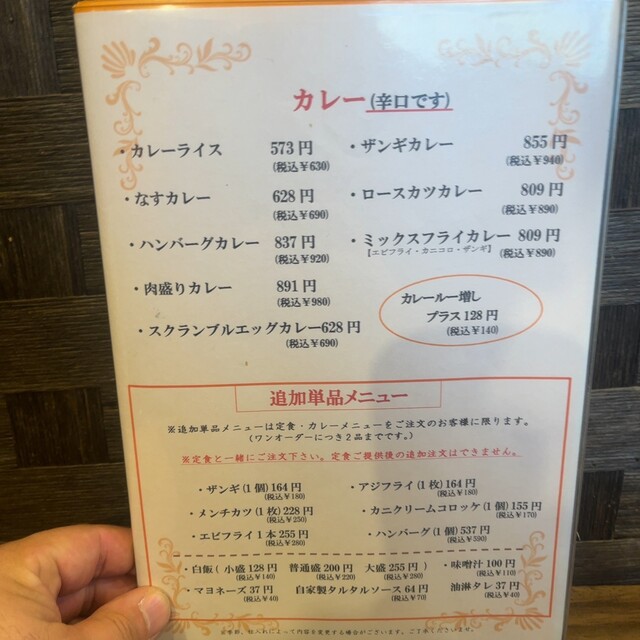 カレー(辛口です)
・カレーライス 573円
(税込￥630)
・なすカレー 628円
(税込￥690)
・ハンバーグカレー 837円
(税込￥920)
・肉盛りカレー 891円
(税込￥980)
・スクランブルエッグカレー628円
(税込￥690)
・ザンギカレー 855円
(税込￥940)
・ロースカツカレー 809円
(税込￥890)
・ミックスフライカレー 809円
【エビフライ・カニコロ・ザンギ】 (税込￥890)
カレールー増し
プラス128円
(税込￥140)
追加単品メニュー
※追加単品メニューは定食・カレーメニューをご注文のお客様に限ります。
(ワンオーダーにつき2品までです。)
※定食と一緒にご注文下さい。定食ご提供後の追加注文はできません。
・ザンギ(1個)164円
(税込￥180)
・アジフライ(1枚)164円
(税込￥180)
・メンチカツ(1枚)228円
(税込￥250)
・カニクリームコロッケ(1個)155円
(税込￥170)
・エビフライ1本255円
(税込￥280)
・ハンバーグ(1個)537円
(税込￥590)
・白飯(小盛128円 普通盛200円 大盛255円)
(税込￥140) (税込￥220) (税込￥280)
・味噌汁100円
(税込￥110)
・マヨネーズ37円
(税込￥40)
自家製タルタルソース64円
(税込￥70)
油淋タレ37円
(税込￥40)
※季節、仕入れによって内容を変更する場合がございます。ご了承くださいませ。